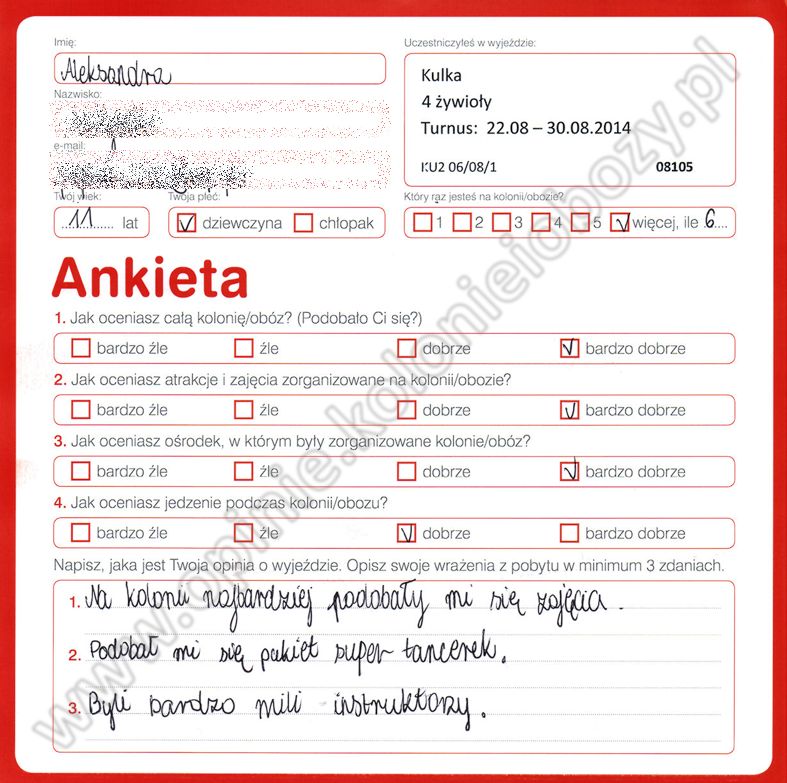 Imię:
Uczestniczyłeś w wyjeździe:
Aleksandra
Kulka
4 żywioły
Turnus: 22.08 – 30.08.2014
KU2 06/08/1 08105
Nazwisko:
e-mail:
Twój wiek:
Twoja płeć:
Który raz jesteś na kolonii/obozie?
11 lat
dziewczyna chłopak
1 2 3 4 5 więcej, ile 6
Ankieta
1. Jak oceniasz całą kolonię/obóz? (Podobało Ci się?)
bardzo źle źle dobrze bardzo dobrze
2. Jak oceniasz atrakcje i zajęcia zorganizowane na kolonii/obozie?
bardzo źle źle dobrze bardzo dobrze
3. Jak oceniasz ośrodek, w którym były zorganizowane kolonie/obóz?
bardzo źle źle dobrze bardzo dobrze
4. Jak oceniasz jedzenie podczas kolonii/obozu?
bardzo źle źle dobrze bardzo dobrze
Napisz, jaka jest Twoja opinia o wyjeździe. Opisz swoje wrażenia z pobytu w minimum 3 zdaniach.
1. Na kolonii najbardziej podobały mi się zajęcia.
2. Podobał mi się pakiet super tancerek.
3. Byli bardzo mili instruktorzy.
www.opinie.kolonieiobozy.pl